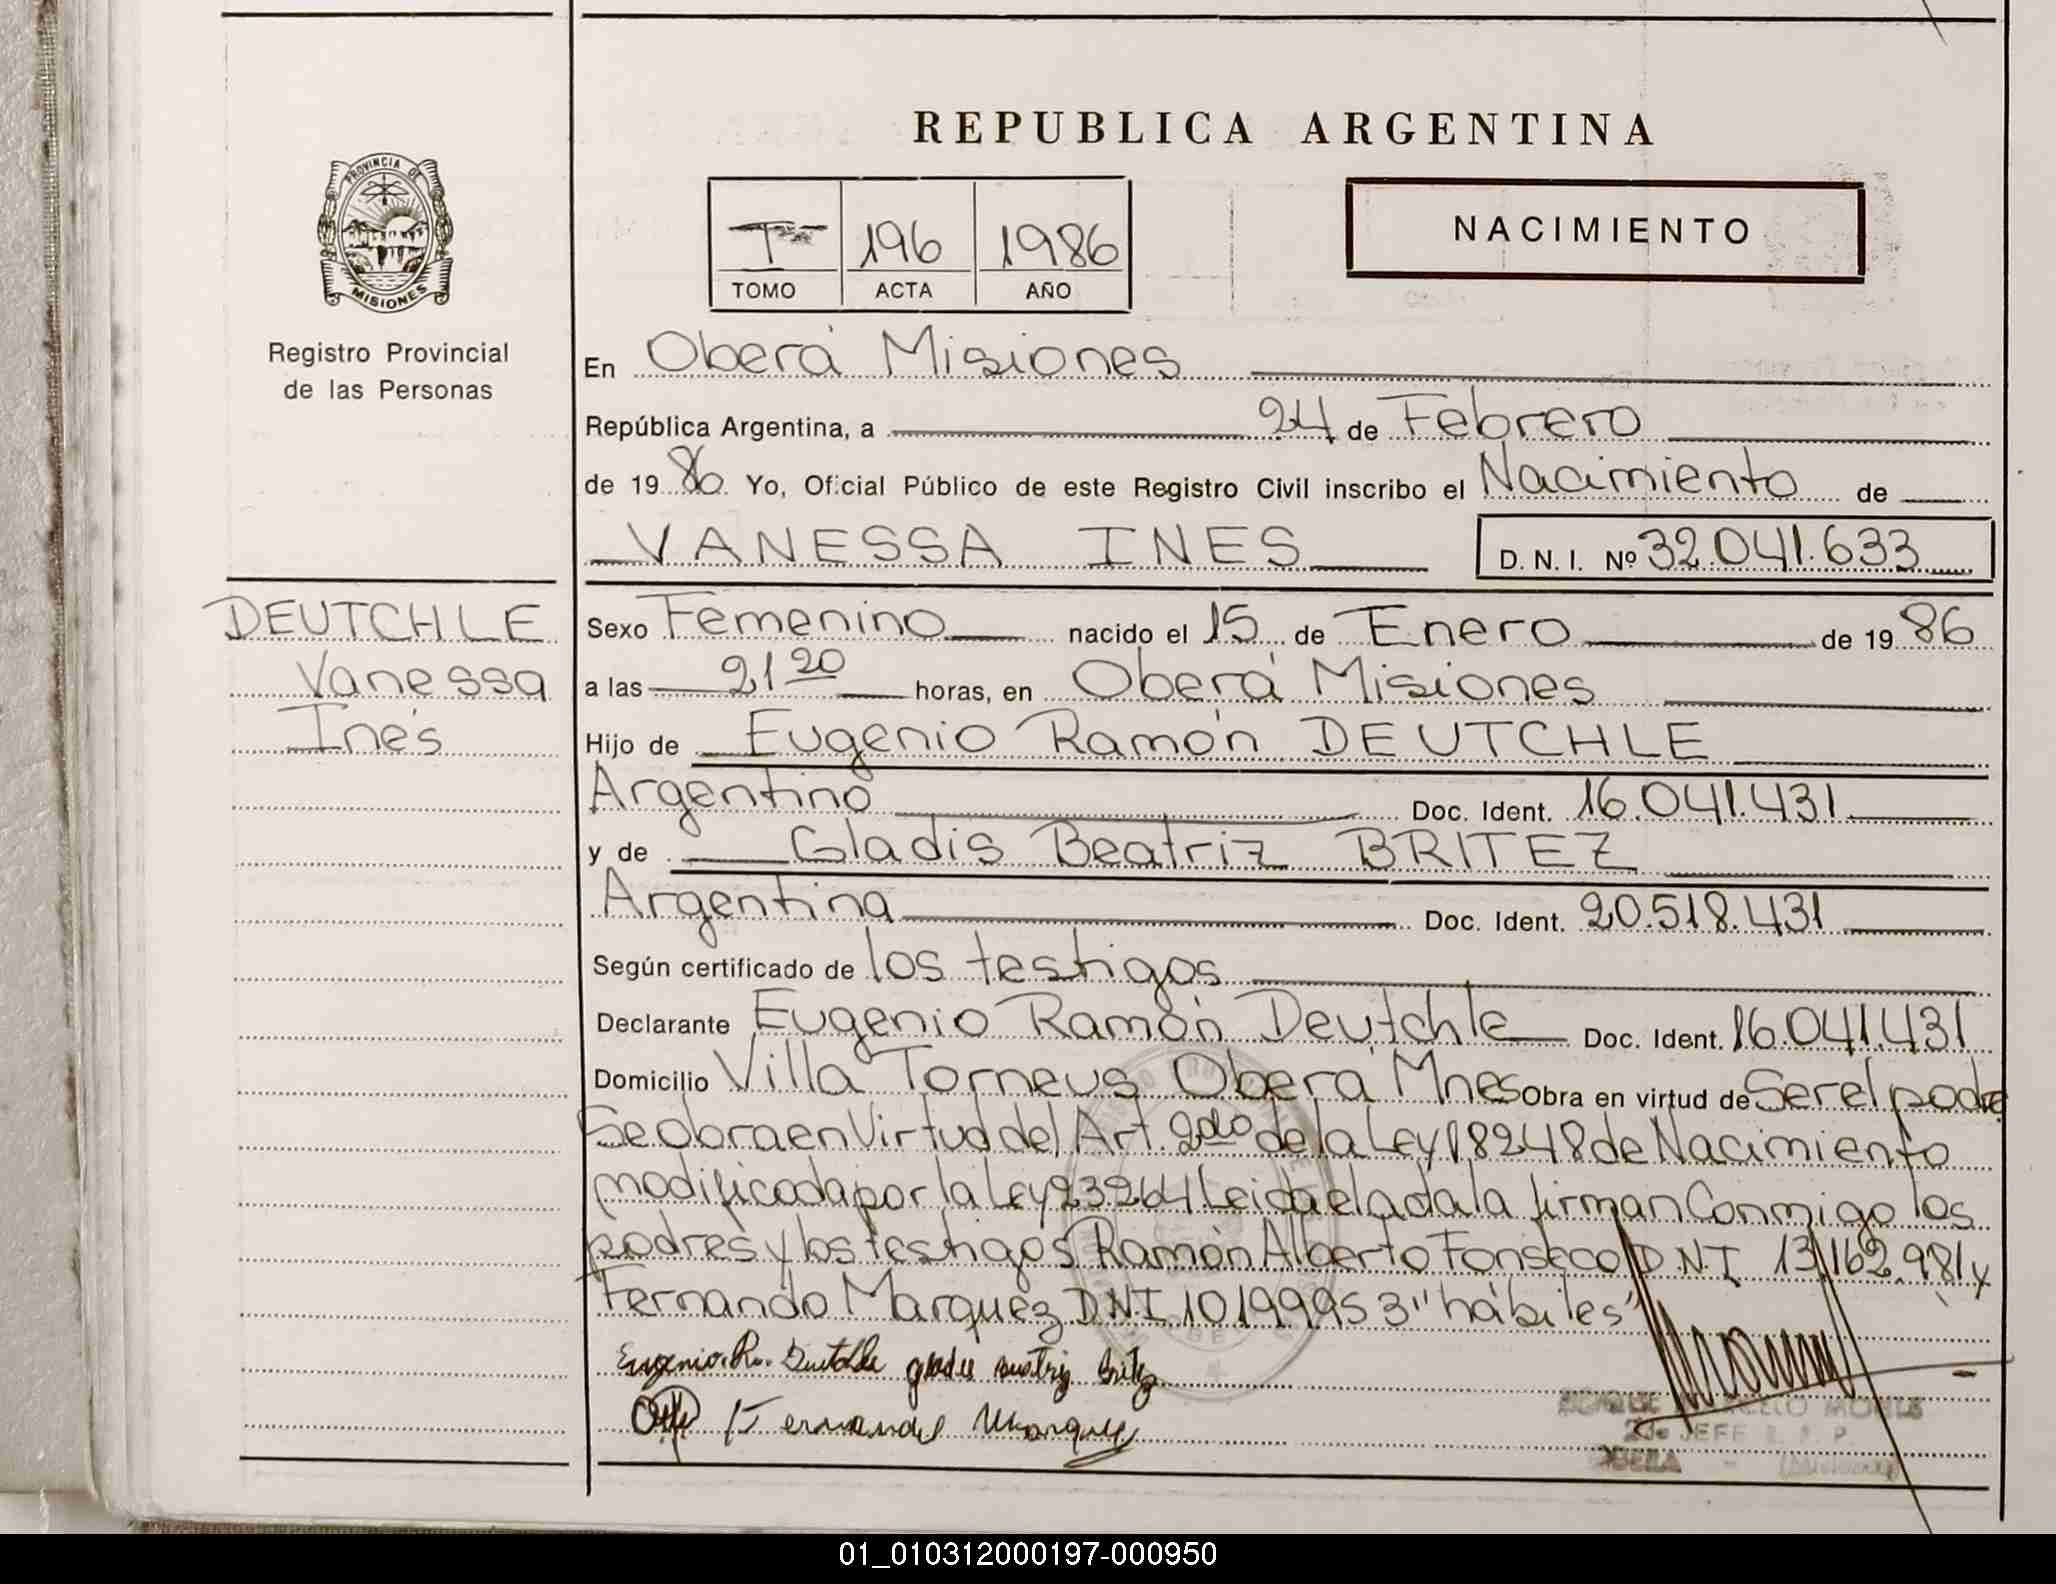 REPUBLICA ARGENTINA
PROVINCIA DE
MISIONES
Registro Provincial
de las Personas
T 196 1986
TOMO ACTA AÑO
NACIMIENTO
En Oberá Misiones
República Argentina, a 24 de Febrero
de 1986 Yo, Oficial Público de este Registro Civil inscribo el Nacimiento de
VANESSA INES D. N. I. Nº 32.041.633
DEUTCHLE
Vanessa
Inés
Sexo Femenino nacido el 15 de Enero de 1986
a las 21 20 horas, en Oberá Misiones
Hijo de Eugenio Ramón DEUTCHLE
Argentino Doc. Ident. 16.041.431
y de Gladis Beatriz BRITEZ
Argentina Doc. Ident. 20.518.431
Según certificado de los testigos
Declarante Eugenio Ramón Deutchle Doc. Ident. 16.041.431
Domicilio Villa Torneus Oberá Mnes Obra en virtud de Ser el padre
Se obra en Virtud del Art. 2do de la Ley 18248 de Nacimiento
modificada por la Ley 23264 Leida el acta la firman Conmigo los
padres y los testigos Ramón Alberto Fonseco D.N.I 13.162.981 y
Fernando Marquez D.N.I 10199953 "hábiles"
Eugenio R. Deutchle gladis beatriz Britez
Fernando Marquez
JEFE
01_010312000197-000950